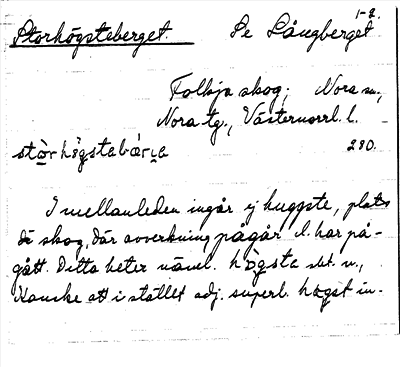 1-2.
Storhögsteberget. Se Långberget
Folkja skog; Nora sn,
Nora tg., Västernorrl. l.
stòrhö̀gstebær̀ɩe 280.
I mellanleden ingår ej huggste, plats
då skog, där avverkning pågår l. har på-
gått. Detta heter näml. hògste det. n.,
Kanske att i stället adj. superl. högst in-